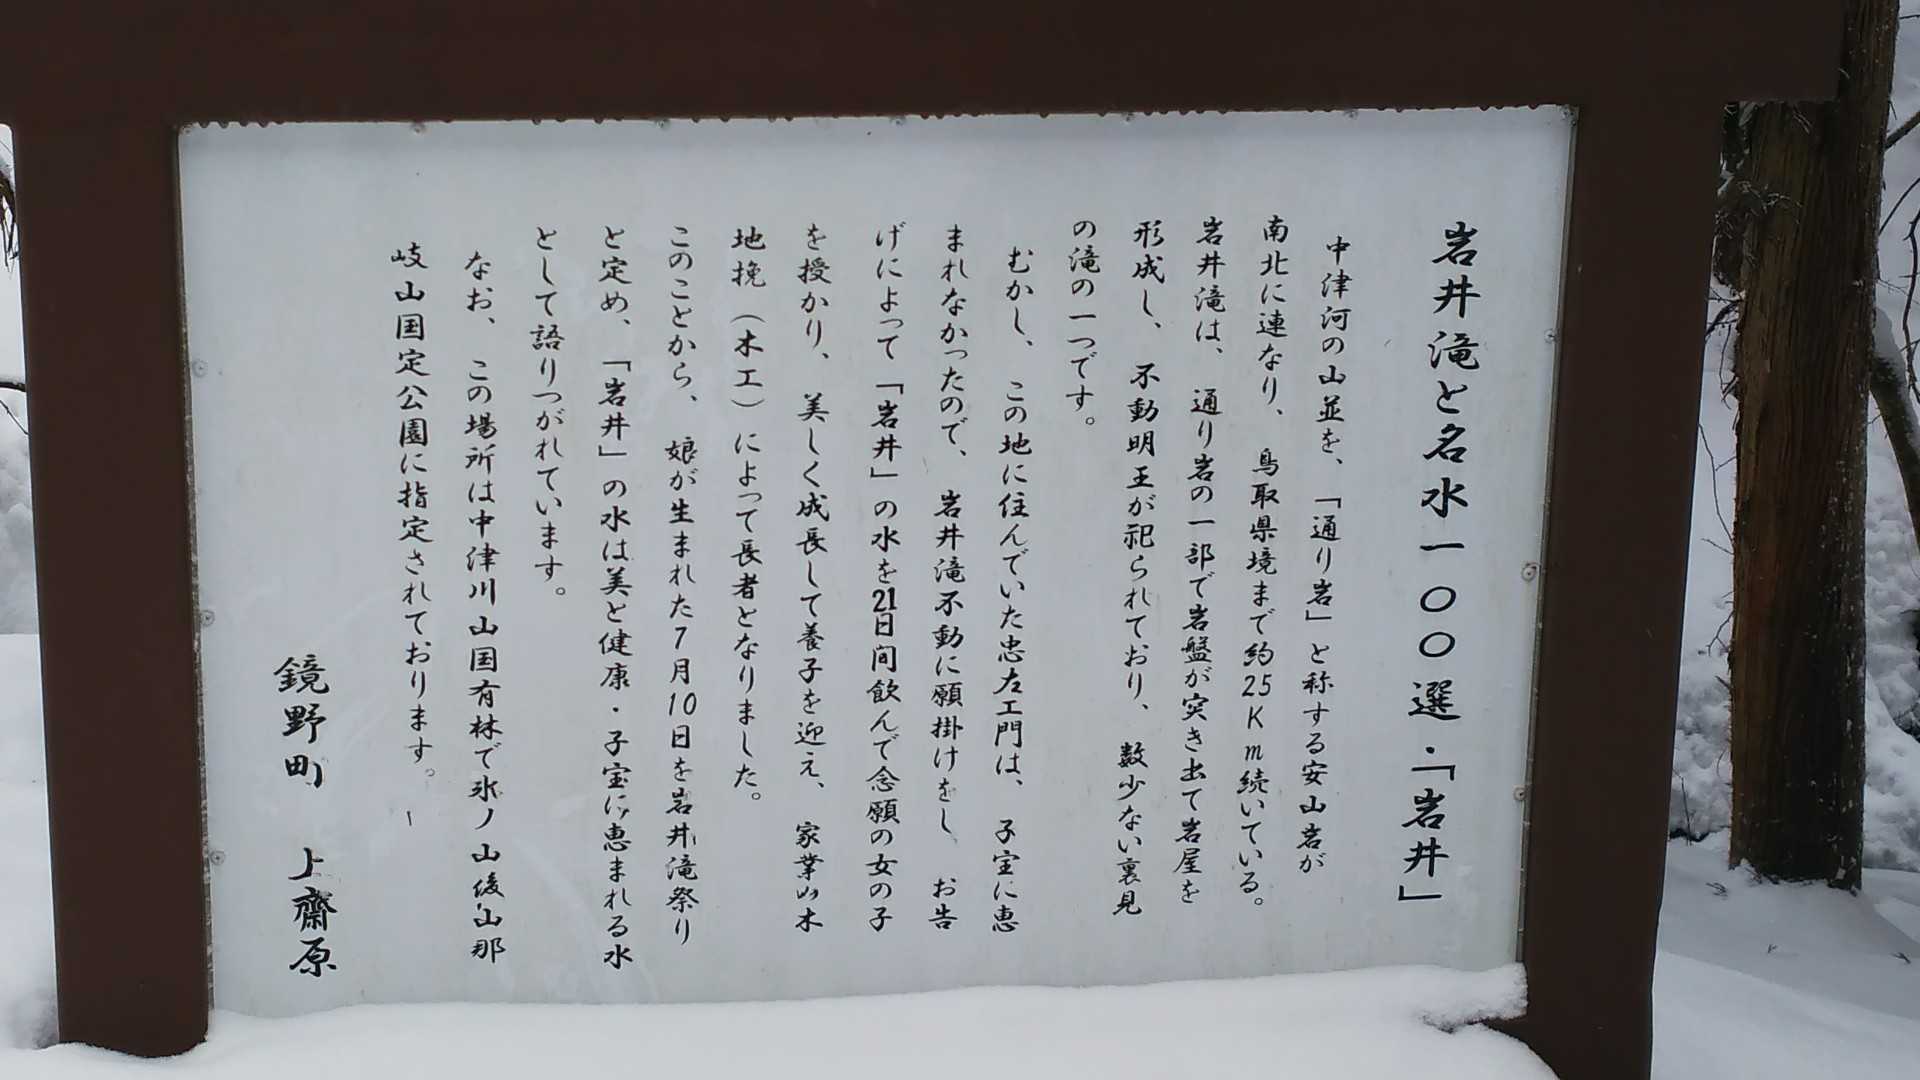 岩井滝と名水一〇〇選・「岩井」
中津河の山並を、「通り岩」と称する安山岩が
南北に連なり、鳥取県境まで約25Km続いている。
岩井滝は、通り岩の一部で岩盤が突き出て岩屋を
形成し、不動明王が祀られており、数少ない裏見
の滝の一つです。
むかし、この地に住んでいた忠左エ門は、子宝に恵
まれなかったので、岩井滝不動に願掛けをし、お告
げによって「岩井」の水を21日間飲んで念願の女の子
を授かり、美しく成長して養子を迎え、家業山木
地挽（木工）によって長者となりました。
このことから、娘が生まれた7月10日を岩井滝祭り
と定め、「岩井」の水は美と健康・子宝に恵まれる水
として語りつがれています。
なお、この場所は中津川山国有林で氷ノ山後山那
岐山国定公園に指定されております。
鏡野町 上齋原